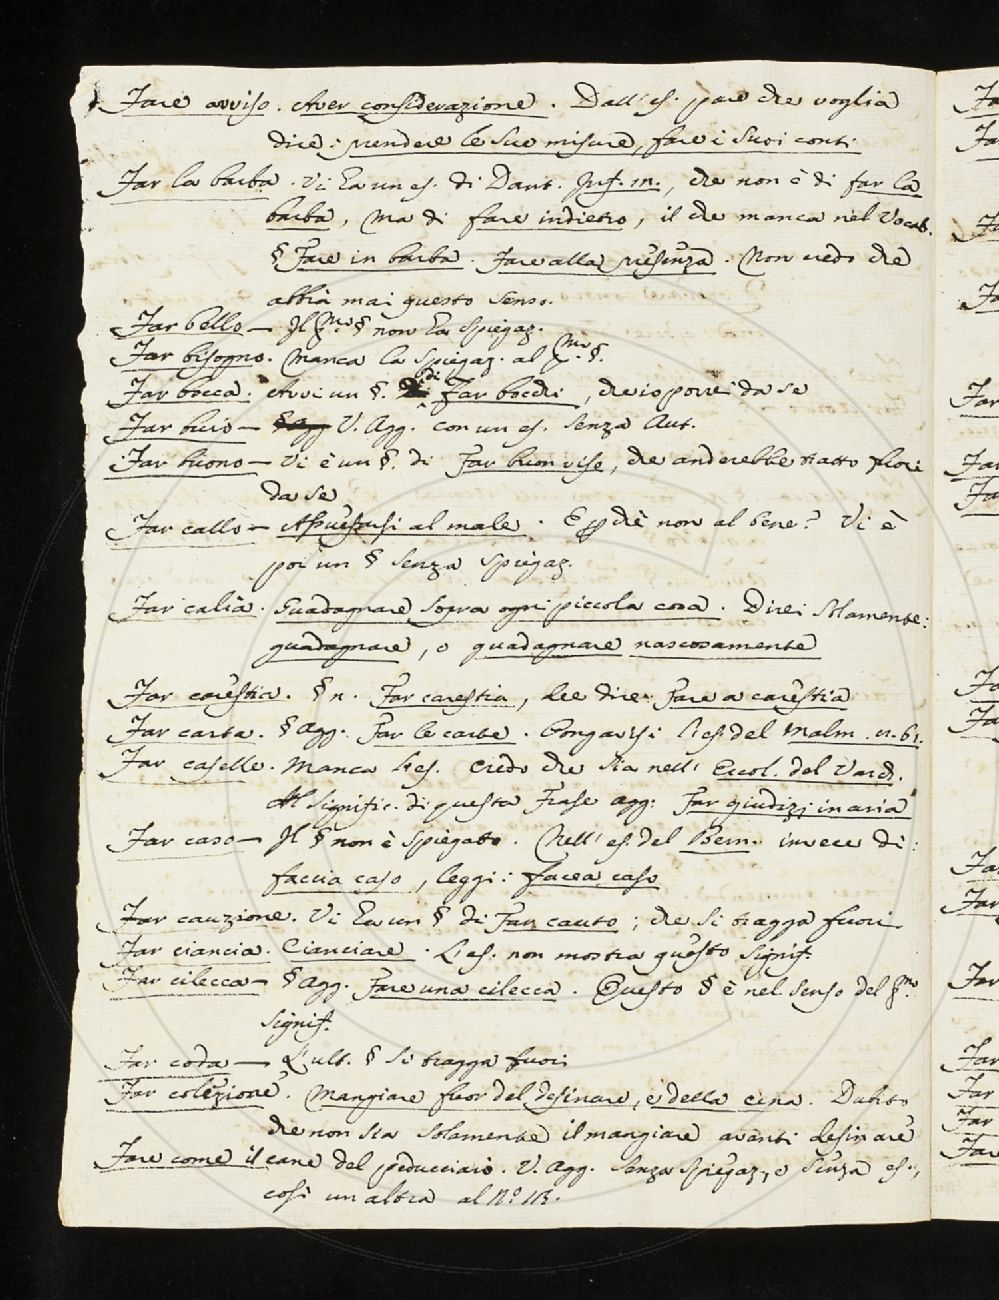 Fare avviso. Aver considerazione. Dall'es. pare che voglia
dire: prendere le sue misure, fare i suoi conti
Far la barba. Vi ha un es. di Dant. Inf. in., che non è di far la
barba, ma di fare indietro, il che manca nel Vocab.
§ Fare in barba. Fare alla presenza. Non vedo che
abbia mai questo senso.
Far bello — Il pmo § non ha spiegaz.
Far bisogno. Manca la spiegaz. al pmo §.
Far bocca. Avvi un §. di Far bocchi, che io porrei da se
Far buio — § agg V. Agg. con un es. senza Aut.
Far buono — Vi è un §. di Far buon viso, che anderebbe tratto fuori
da se
Far callo — Assuefarsi al male. E perchè non al bene? Vi è
poi un § senza spiegaz.
Far calìa. Guadagnare sopra ogni piccola cosa. Direi solamente:
guadagnare, o guadagnare nascosamente
Far carestia. § n. Far carestia, dee dire: Fare a carestia
Far carta. § agg. Far le carte. Pongavisi l'es. del Malm. 11. 61.
Far caselle. Manca l'es. Credo che sia nell' Ercol. del Varch.
Al signific. di questa Frase agg: Far giudizj in aria
Far caso — Il § non è spiegato. Nell' es. del Bern. invece di:
faccia caso, leggi: facea caso
Far cauzione. Vi ha un § di Far cauto; che si tragga fuori
Far ciancia. Cianciare. L'es. non mostra questo signif.
Far cilecca — § agg. Fare una cilecca. Questo § è nel senso del pmo
signif.
Far coda — L'ult. § si tragga fuori
Far colezione. Mangiare fuor del desinare, e della cena. Dubito
che non sia solamente il mangiare avanti desinare
Fare come il cane del peducciaio. V. agg. senza spiegaz., o senza es.,
così un altra al N.° 113.